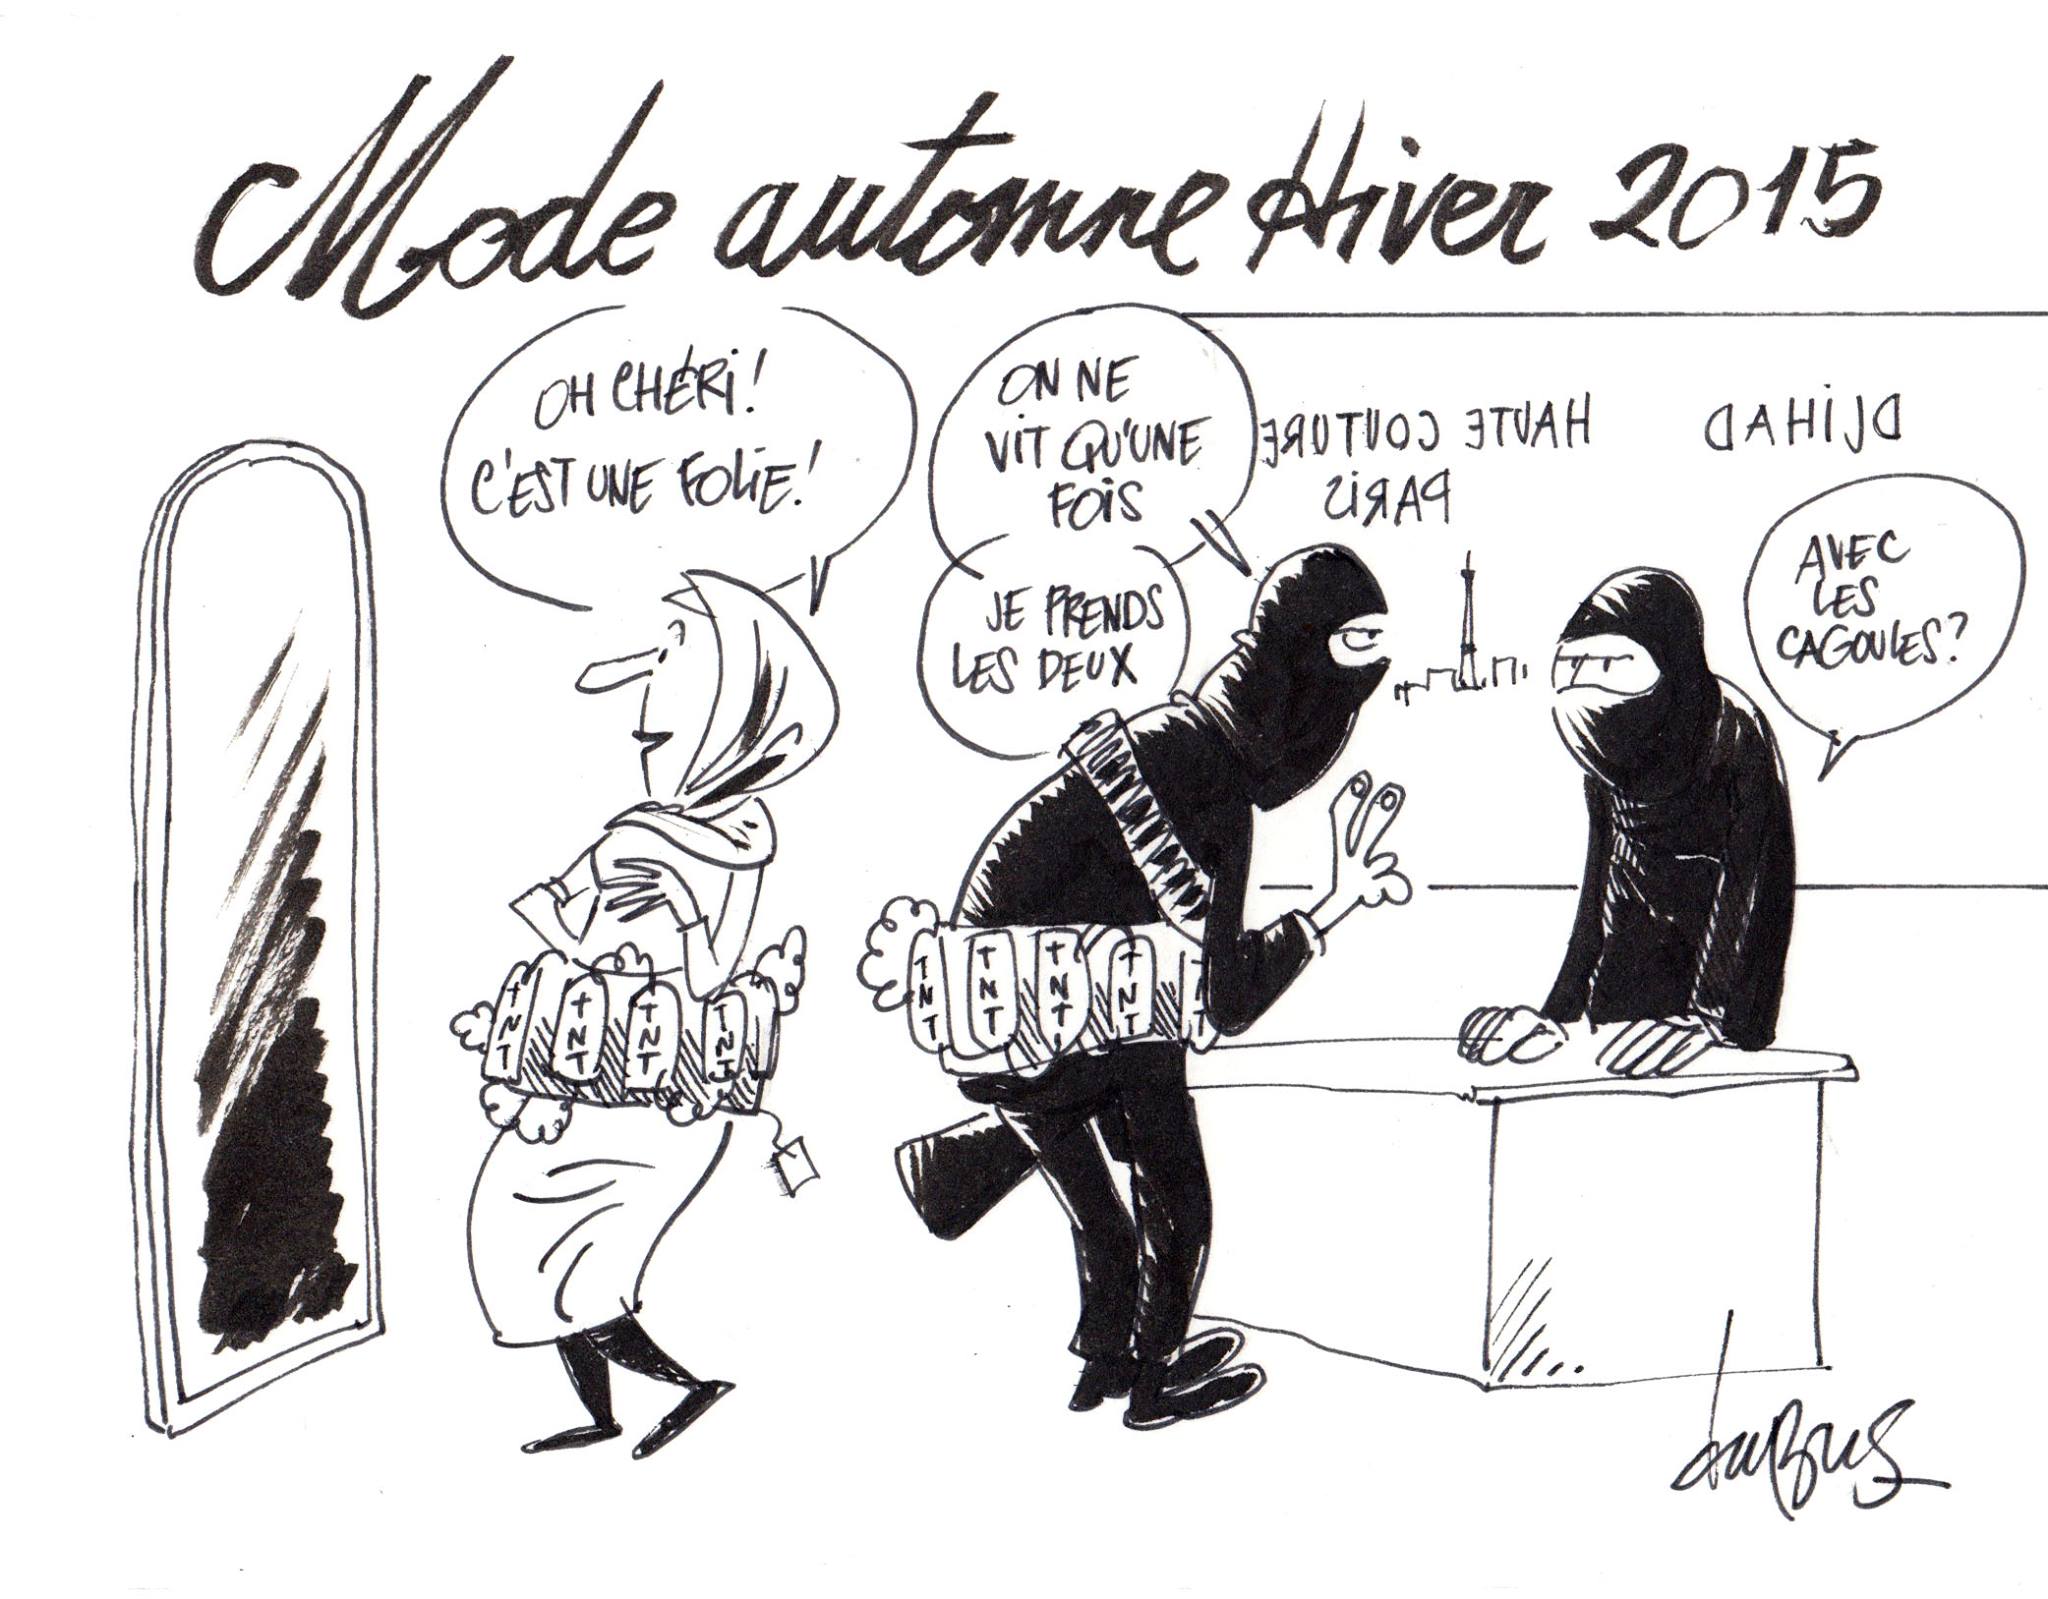 Mode automne Hiver 2015
OH CHÉRI!
C'EST UNE FOLIE!
ON NE
VIT QU'UNE
FOIS
JE PRENDS
LES DEUX
HAUTE COUTURE
PARIS
DJIHAD
AVEC
LES
CAGOULES?
TNT
TNT
TNT
TNT
TNT
TNT
TNT
TNT
dubus